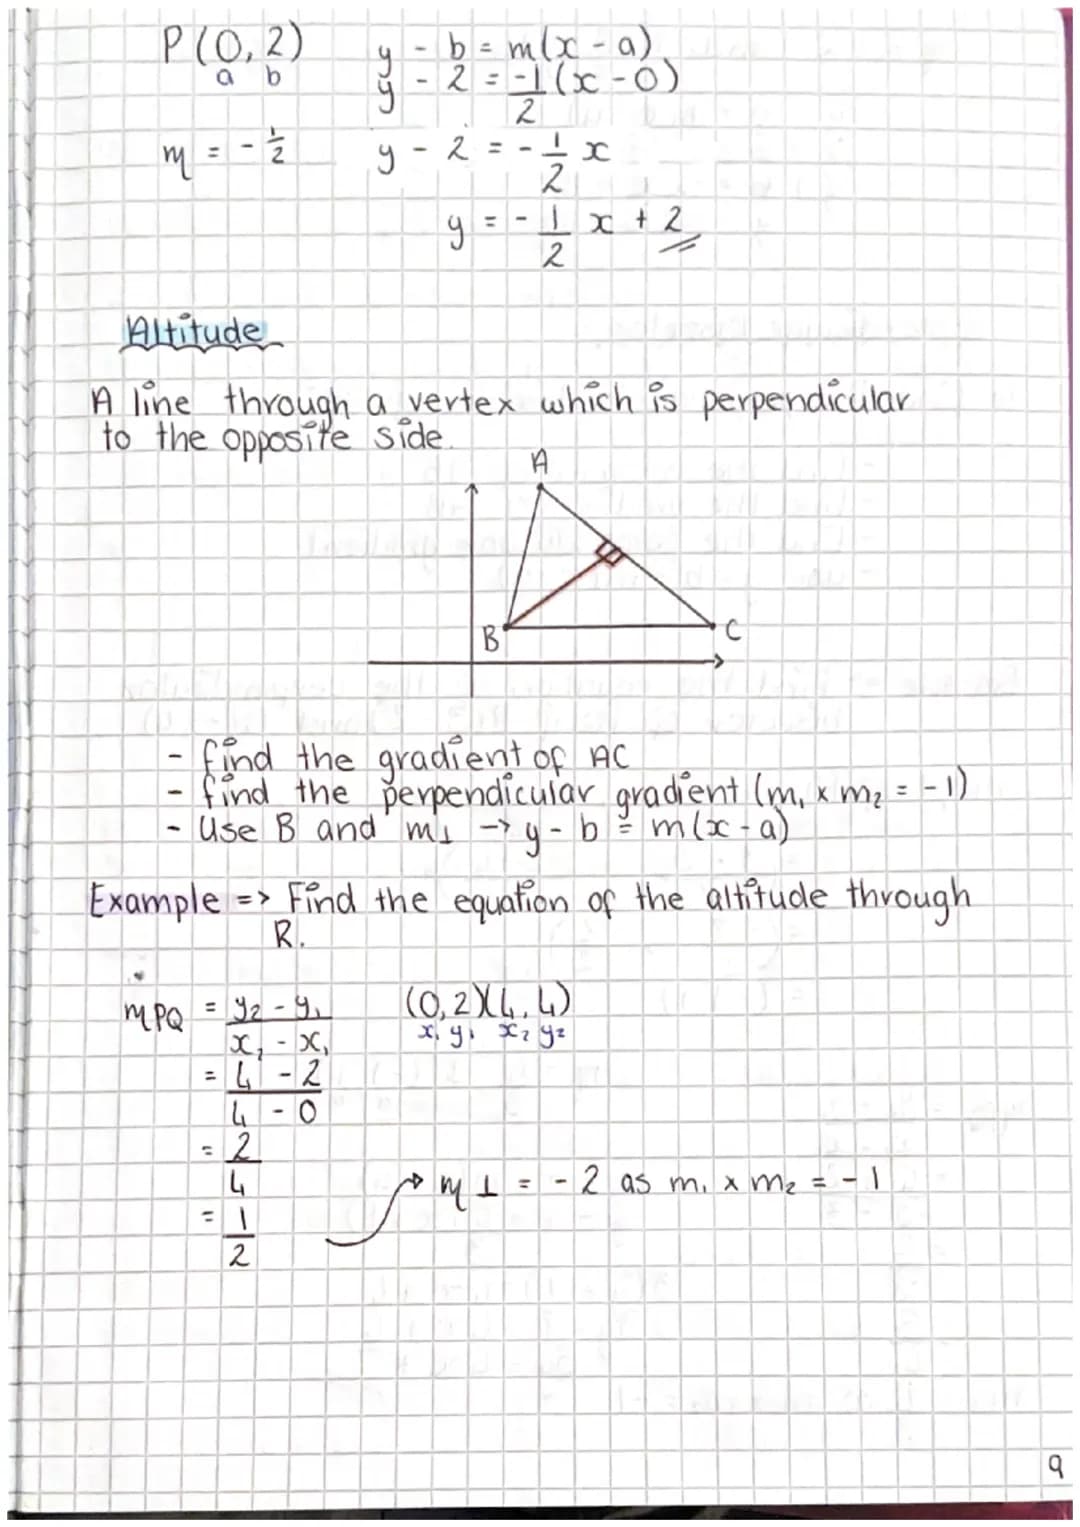 P(0, 2)
a b
y - b = m(x - a)
y - 2 = -1/2 (x - 0)
m = - 1/2
y - 2 = - 1/2 x
y = - 1/2 x + 2
Altitude
A line through a vertex which is perpendicular
to the opposite side.
A
B
C
- find the gradient of AC
- find the perpendicular gradient (m₁ x m₂ = -1)
- Use B and m⊥ → y - b = m(x - a)
Example => Find the equation of the altitude through
R.
mPQ = y₂ - y₁ / x₂ - x₁
(0, 2)(4, 4)
x₁ y₁ x₂ y₂
= 4 - 2 / 4 - 0
= 2/4
m⊥ = - 2 as m₁ x m₂ = - 1
= 1/2
9